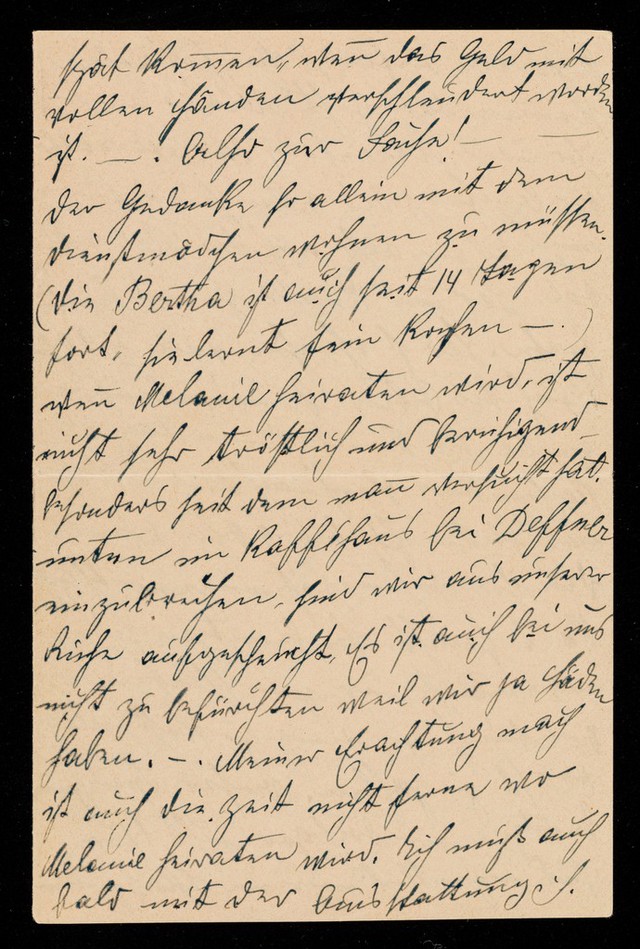 spät kommen, wenn das Geld mit
vollen Händen verschleudert worden
ist. — . Also zur Sache! — —
Der Gedanke so allein mit dem
Dienstmädchen wohnen zu müssen.
(Die Bertha ist auch seit 14 Tagen
fort, sie lernt fein Kochen — . )
wenn Melanie heiraten wird, ist
nicht sehr tröstlich und beruhigend
besonders seit dem man versucht hat.
unten im Kaffehaus bei Deffner
einzubrechen, sind wir aus unserer
Ruhe aufgescheucht, Es ist auch bei uns
nicht zu befürchten weil wir ja
haben. — . Meiner Erachtung nach
ist auch die Zeit nicht ferne wo
Melanie heiraten wird. Ich muß auch
bald mit der Ausstattung